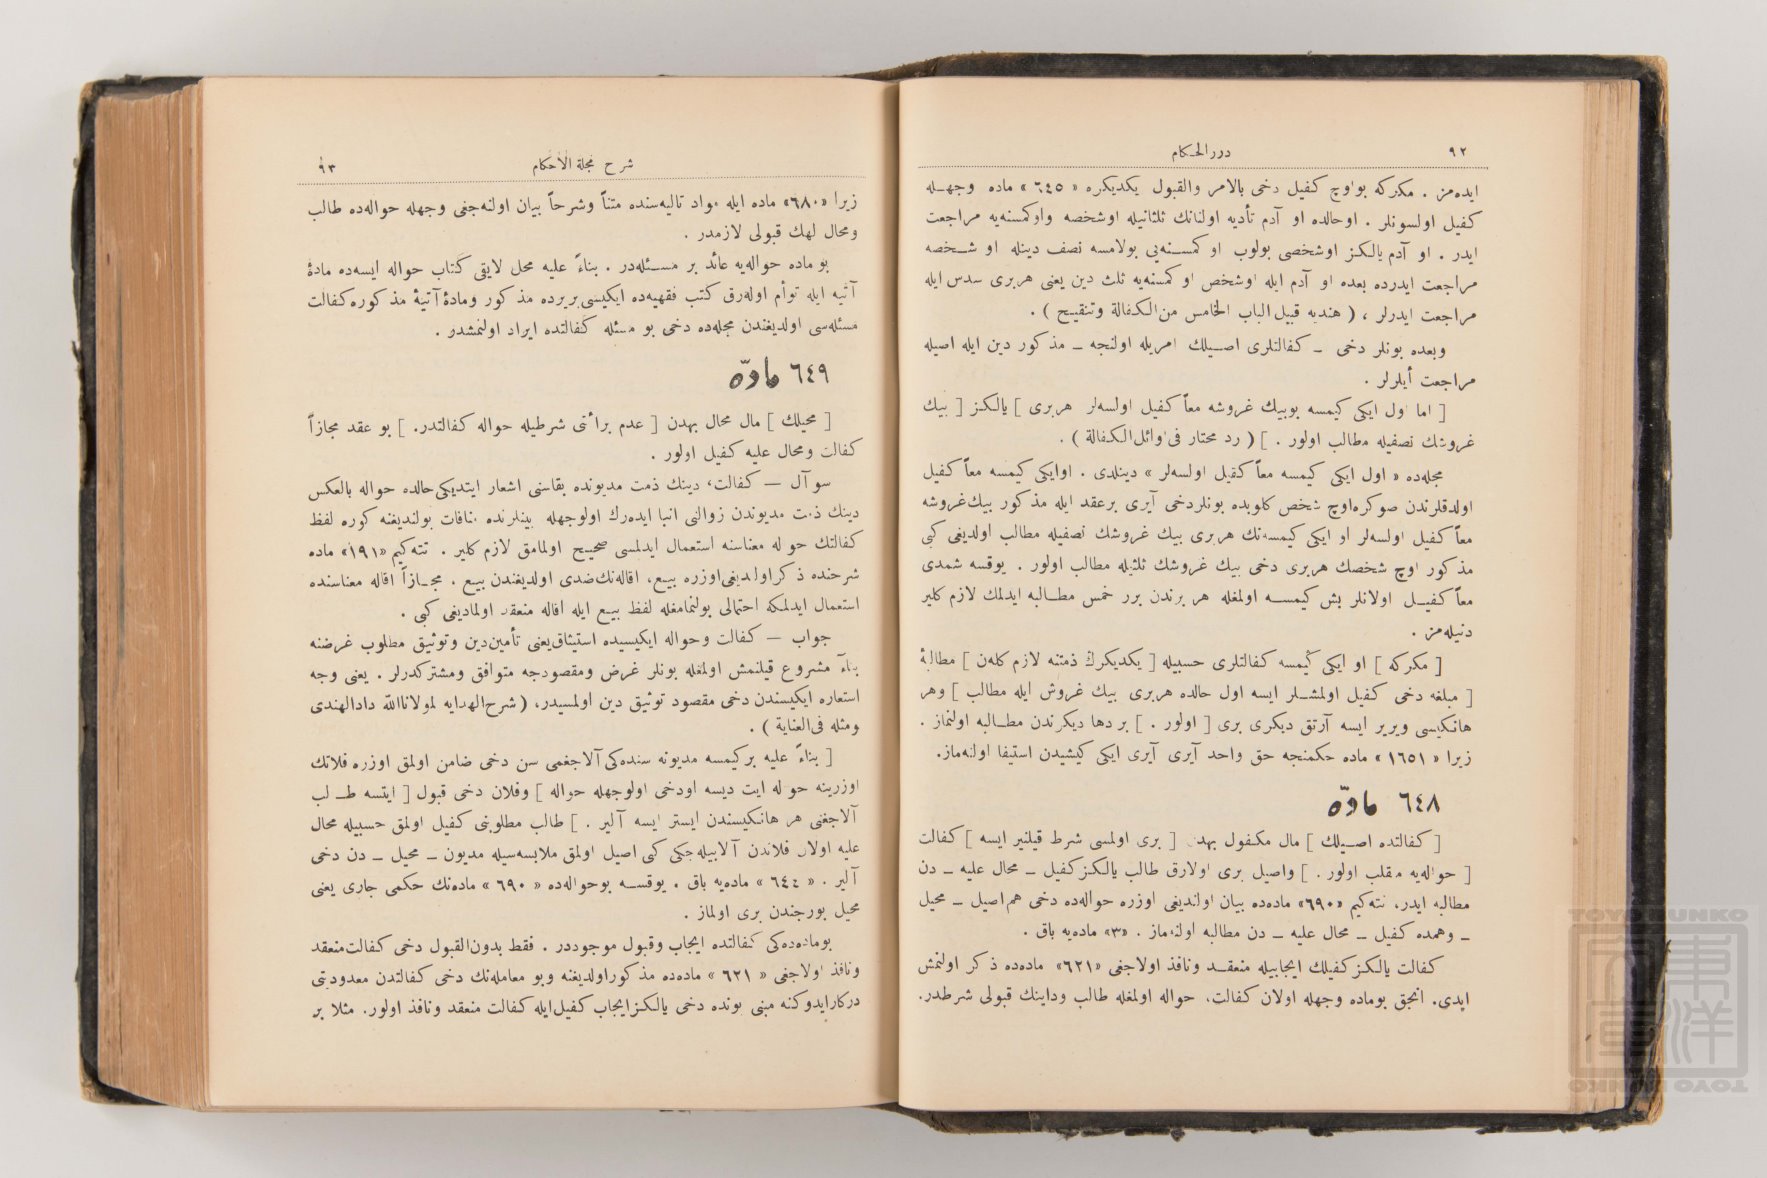 ٩٢
درر الحكام
ايده‌مز . مكركه بو اوچ كفيل دخى بالامر والقبول يكديكره « ٦٤٥ » ماده وجهــله
كفيل اولسونلر . او حالده او آدم تأديه اولنانك ثلثانيله اوشخصه واوكمسنه‌يه مراجعت
ايدر . او آدم يالكز اوشخصى بولوب اوكمســنه‌يى بولامسه نصف دينله او شــخصه
مراجعت ايدرده بعده او آدم ايله اوشخص اوكمسنه‌يه ثلث دين يعنى هربرى سدس ايله
مراجعت ايدرلر ، ( هنديه قبيل الباب الخامس من الكفالة وتنقيح ) .
وبعده بونلر دخى ــ كفالتلرى اصــيلك امريله اولنجه ــ مذكور دين ايله اصيله
مراجعت أيلرلر .
[ اما اول ايكى كيمسه بوبيك غروشه معاً كفيل اولسه‌لر هربرى ] يالكز [ بيك
غروشك نصفيله مطالب اولور . ] ( رد محتار فى اوائل الكفالة ) .
مجله‌ده « اول ايكى كيمسه معاً كفيل اولسه‌لر » دينلدى . اوايكى كيمسه معاً كفيل
اولدقلرندن صوكره اوچ شخص كلوبده بونلردخى آيرى برعقد ايله مذكور بيك غروشه
معاً كفيل اولسه‌لر او ايكى كيمسه‌نك هربرى بيك غروشك نصفيله مطالب اولديغى كبى
مذكور اوچ شخصك هربرى دخى بيك غروشك ثلثيله مطالب اولور . يوقسه شمدى
معاً كفيــل اولانلر بش كيمســه اولمغله هر برندن برر خمس مطــالبه ايدلمك لازم كلير
دنيله‌مز .
[ مكركه ] او ايكى كيمسه كفالتلرى حسبيله [ يكديكرك ذمتنه لازم كله‌ن ] مطالبۀ
[ مبلغه دخى كفيل اولمشــلر ايسه اول حالده هربرى بيك غروش ايله مطالب ] وهر
هانكيسى ويرير ايسه آرتق ديكرى برى [ اولور . ] بر دها ديكرندن مطــالبه اولنماز .
زيرا « ١٦٥١ » ماده حكمنجه حق واحد آيرى آيرى ايكى كيشيدن استيفا اولنه‌ماز.
٦٤٨ مادّه
[ كفالتده اصــيلك ] مال مكفول بهدن [ برى اولمسى شرط قيلنير ايسه ] كفالت
[ حواله‌يه منقلب اولور . ] واصيل برى اولارق طالب يالكز كفيل ــ محال عليه ــ دن
مطالبه ايدر، نته‌كيم «٦٩٠» ماده‌ده بيان اولنديغى اوزره حواله‌ده دخى هم اصيل ــ محيل
ــ وهمده كفيل ــ محال عليه ــ دن مطالبه اولنه‌ماز . «٣» ماده‌يه باق .
كفالت يالكز كفيلك ايجابيله منعقــد ونافذ اولاجغى «٦٢١» ماده‌ده ذكر اولنمش
ايدى. انجق بوماده وجهله اولان كفالت، حواله اولمغله طالب وداينك قبولى شرطدر.
شرح مجلة الاحكام
٩٣
زيرا «٦٨٠» ماده ايله مواد تاليه‌سنده متناً وشرحاً بيان اولنه‌جغى وجهله حواله‌ده طالب
ومحال لهك قبولى لازمدر .
بو ماده حواله‌يه عائد بر مســئله‌در . بناءً عليه محل لايقى كتاب حواله ايسه‌ده مادۀ
آتيه ايله توأم اوله‌رق كتب فقهيه‌ده ايكيسى بريرده مذكور ومادۀ آتيۀ مذكوره كفالت
مسئله‌سى اولديغندن مجله‌ده دخى بو مسئله كفالتده ايراد اولنمشدر .
٦٤٩ مادّه
[ محيلك ] مال محال بهدن [ عدم برائتى شرطيله حواله كفالتدر. ] بو عقد مجازاً
كفالت ومحال عليه كفيل اولور .
سوآل ــ كفالت، دينك ذمت مديونده بقاسنى اشعار ايتديكى حالده حواله بالعكس
دينك ذمت مديوندن زوالنى انبا ايده‌رك اولوجهله بينلرنده منافات بولنديغنه كوره لفظ
كفالتك حواله معناسنه استعمال ايدلمسى صحيح اولمامق لازم كلير . نته‌كيم «١٩١» ماده
شرحنده ذكر اولنديغى اوزره بيع، اقاله‌نك ضدى اولديغندن بيع . مجــازاً اقاله معناسنده
استعمال ايدلمكه احتمالى بولنمامغله لفظ بيع ايله اقاله منعقد اولماديغى كبى .
جواب ــ كفالت وحواله ايكيسيده استيثاق يعنى تأمين دين وتوثيق مطلوب غرضنه
بناءً مشروع قيلنمش اولمغله بونلر غرض ومقصودجه متوافق ومشتركدرلر . يعنى وجه
استعاره ايكيسندن دخى مقصود توثيق دين اولمسيدر، ( شرح الهدايه لمولانا الله داد الهندى
ومثله فى العناية ) .
[ بناءً عليه بركيمسه مديونه سنده‌كى آلاجغمى سن دخى ضامن اولمق اوزره فلانك
اوزرينه حواله ايت ديسه اودخى اولوجهله حواله ] وفلان دخى قبول [ ايتسه طــالب
آلاجغنى هر هانكيسندن ايستر ايسه آلير . ] طالب مطلوبنى كفيل اولمق حسبيله محال
عليه اولان فلاندن آلابيله‌جكى كبى اصيل اولمق ملابسه‌سيله مديون ــ محيل ــ دن دخى
آلير . « ٦٤٤ » ماده‌يه باق . يوقســه بوحواله‌ده « ٦٩٠ » ماده‌نك حكمى جارى يعنى
محيل بورجندن برى اولماز .
بوماده‌ده‌كى كفالتده ايجاب وقبول موجوددر . فقط بدون القبول دخى كفالت منعقد
ونافذ اولاجغى « ٦٢١ » ماده‌ده مذكور اولديغنه وبو معامله‌نك دخى كفالتدن معدوديتى
دركار ايدوكنه مبنى بونده دخى يالكز ايجاب كفيل ايله كفالت منعقد ونافذ اولور. مثلا بر
TOYO BUNKO